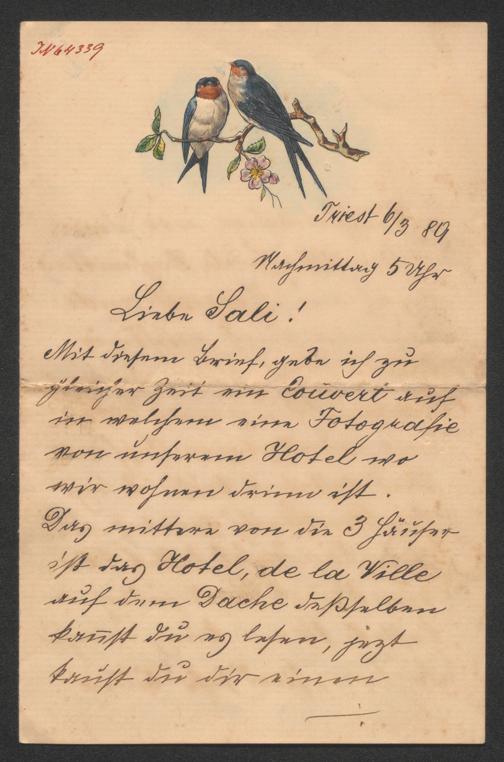 IN 64339
Triest 6/3 89
Nachmittag 5 Uhr
Liebe Sali!
Mit diesem Brief, gebe ich zu
gleicher Zeit ein Couvert auf
in welchem eine Fotografie
von unserem Hotel wo
wir wohnen drinn ist.
Das mittere von die 3 Häuser
ist das Hotel, de la Ville
auf dem Dache deßselben
kan̅st du es lesen, jezt
kan̅st du dir einen